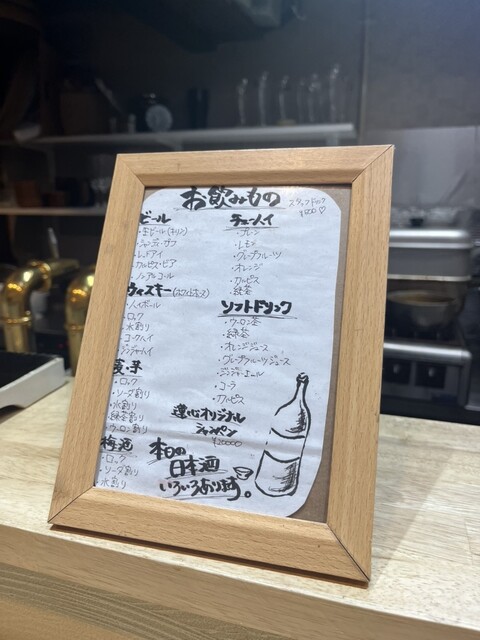 お飲みもの
スタッフドリンク
¥1000♡
ビール
・生ビール(キリン)
・シャンディ・ガフ
・レッドアイ
・カルピス・ビア
・ノンアルコール
ウィスキー(ホワイトホース)
・ハイボール
・ロック
・水割り
・コークハイ
・ジンジャーハイ
麦・芋
・ロック
・ソーダ割り
・水割り
・緑茶割り
・ウーロン割り
梅酒
・ロック
・ソーダ割り
・水割り
チューハイ
・プレーン
・レモン
・グレープフルーツ
・オレンジ
・カルピス
・緑茶
ソフトドリンク
・ウーロン茶
・緑茶
・オレンジジュース
・グレープフルーツジュース
・ジンジャーエール
・コーラ
・カルピス
オリジナル
シャンパン
¥20000
本日の
日本酒
いろいろあります。